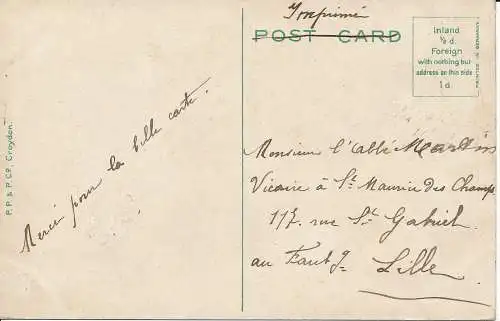 Imprimé
POST CARD
Inland
½ d.
Foreign
with nothing but
address on this side
1 d.
PRINTED IN GERMANY
P.P. & P. Co, Croydon.
Merci pour la belle carte.
Monsieur l'abbé Martin
Vicaire à St Maurice des Champs
117. rue St Gabriel
au Faubg
Lille